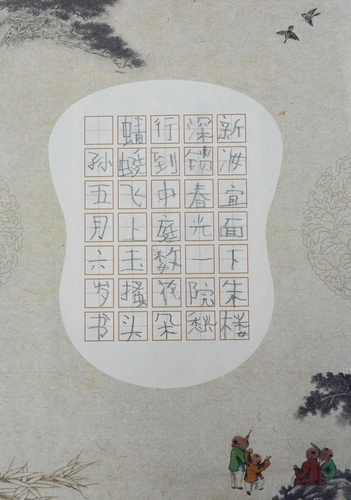 新妆宜面下朱楼
深锁春光一院愁
行到中庭数花朵
蜻蜓飞上玉搔头
孙五月六岁书